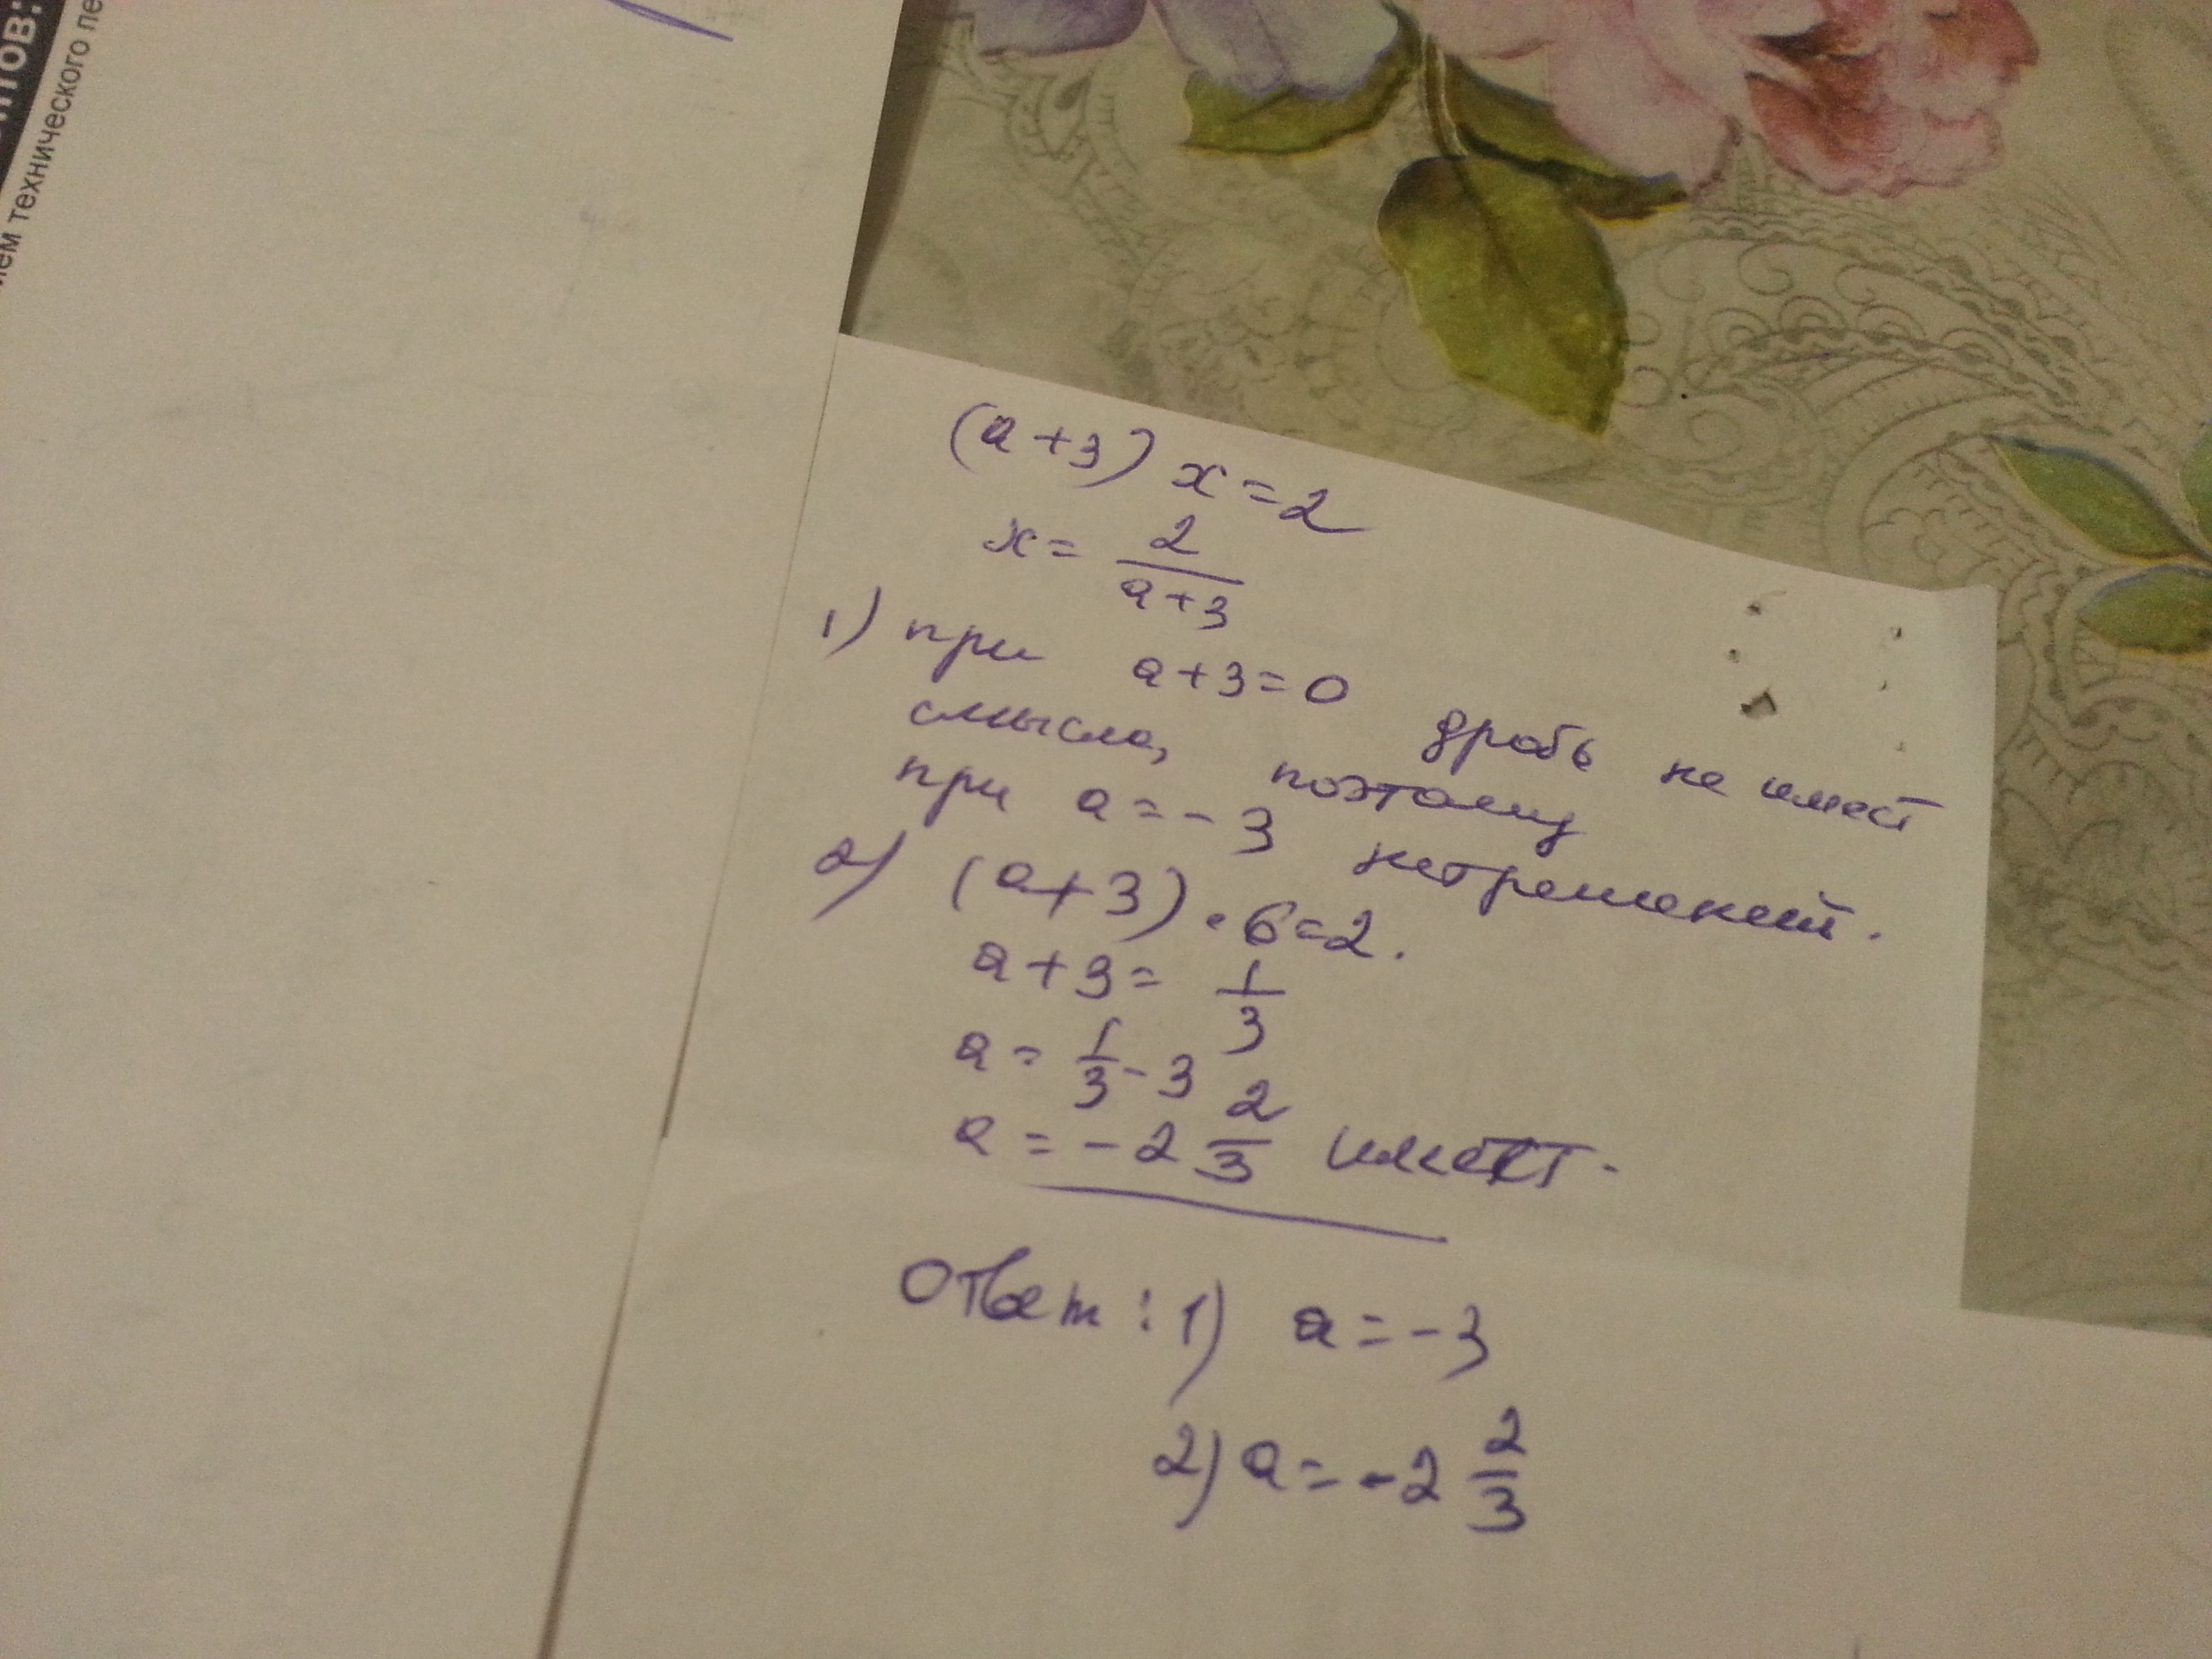 нтов:
ием технического пе
(a+3) x=2
x= 2/(a+3)
1) при a+3=0 дробь не имеет
смысла, поэтому
при a=-3 нет решений.
2) (a+3)·6=2.
a+3= 1/3
a= 1/3 -3
a=-2 2/3 имеет.
Ответ: 1) a=-3
2) a=-2 2/3